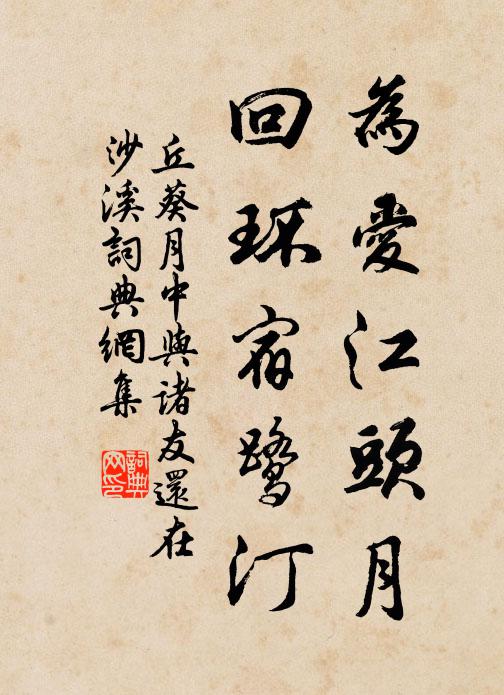 為愛江頭月
回环宿鷺汀
丘葵月中與諸友還在
沙溪詞典網集
詞典
网印